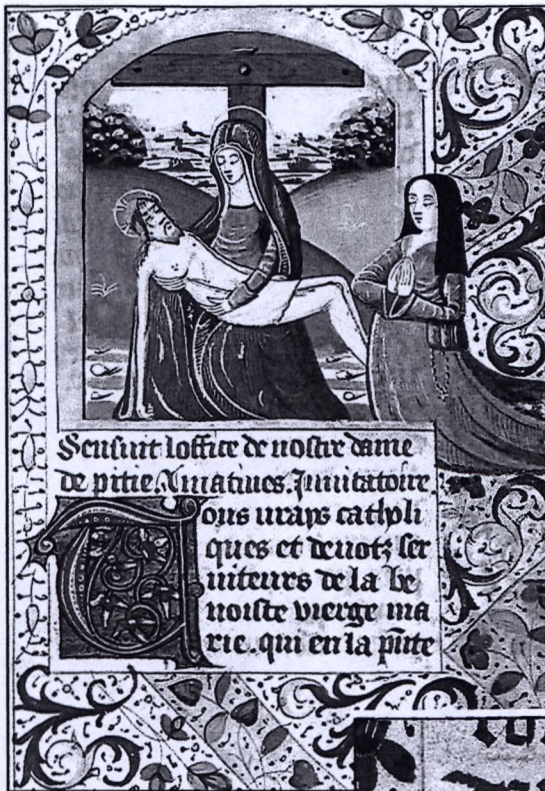 Sensuit loffice de nostre dame
de pitie. A matines. Inuitatoire
Uous urays catholi
ques et deuotz ser
uiteurs de la be
noiste vierge ma
rie. qui en la pñte